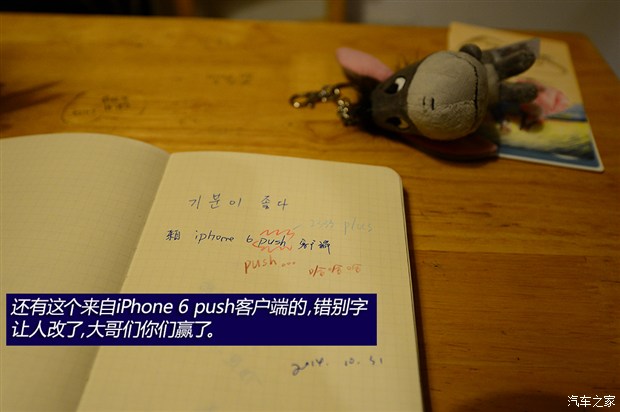 기분이 좋다
来自 iphone 6 push 客户端
push...
哈哈哈
还有这个来自iPhone 6 push客户端的,错别字
让人改了,大哥们你们赢了。
2014. 10. 31
汽车之家